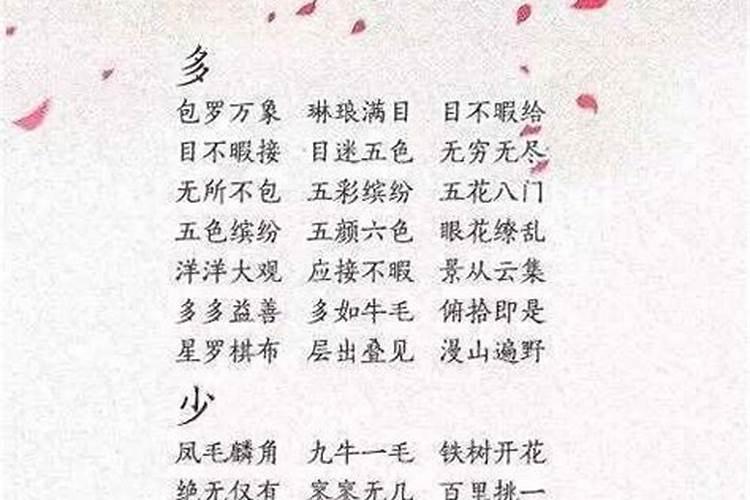 多
包罗万象 琳琅满目 目不暇给
目不暇接 目迷五色 无穷无尽
无所不包 五彩缤纷 五花八门
五色缤纷 五颜六色 眼花缭乱
洋洋大观 应接不暇 景从云集
多多益善 多如牛毛 俯拾即是
星罗棋布 层出叠见 漫山遍野
少
凤毛麟角 九牛一毛 铁树开花
绝无仅有 寥寥无几 百里挑一